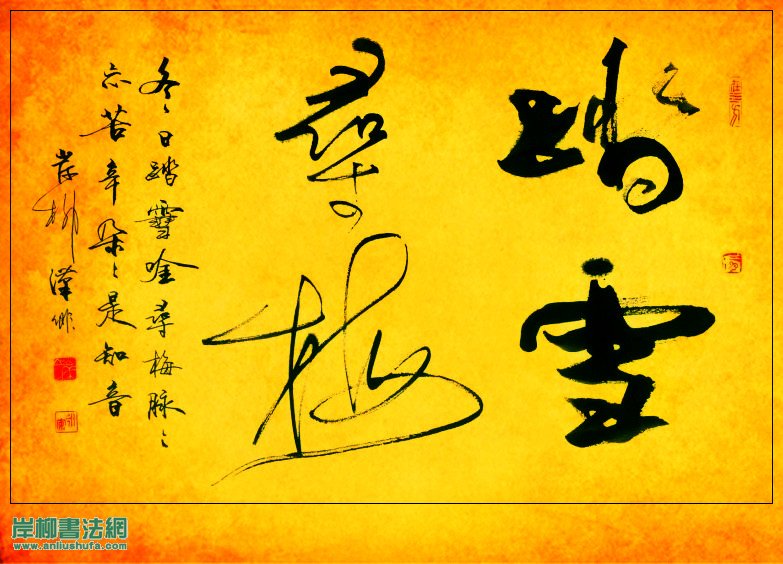 踏雪
尋梅
冬〻日踏雪唫尋梅脉〻
忘苦辛朵〻是知音
岸柳漢作
岸柳書法網
www.anliushufa.com